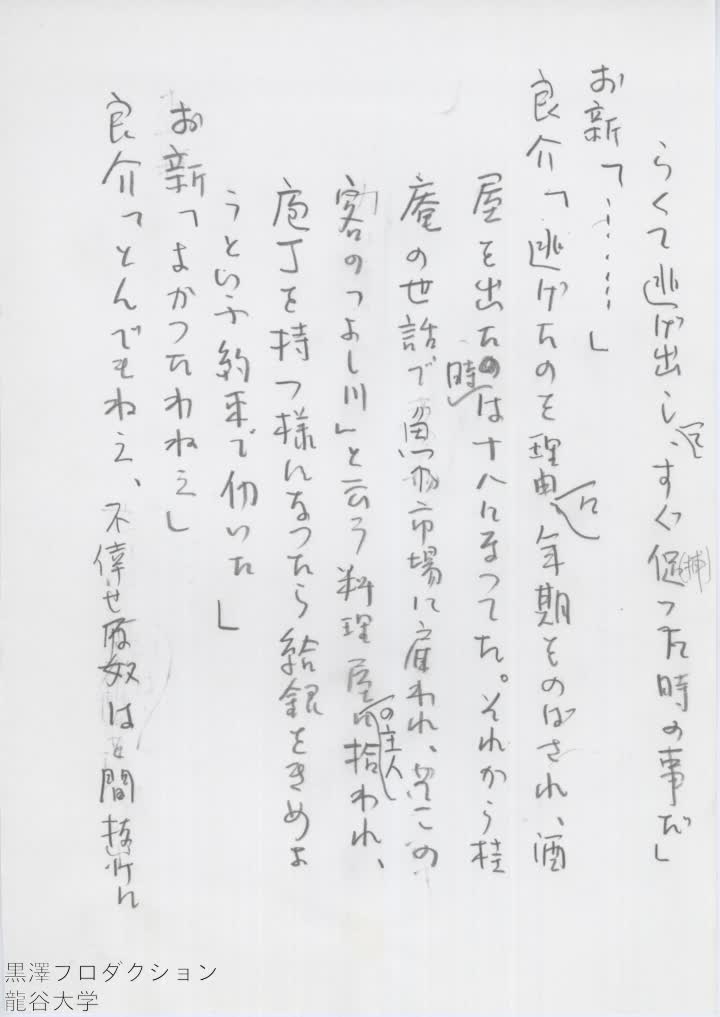 らくて逃げ出し、すぐ捕った時の事だ」
お新「……」
良介「逃げたのを理由に年期をのばされ、酒
屋を出た時は十八になってた。それから桂
庵の世話で魚市場に雇われ、そこの
客の「よし川」と云う料理屋の主人に拾われ、
庖丁を持つ様になったら給銀をきめよ
うという約束で仂いた」
お新「よかったわねえ」
良介「とんでもねえ、不倖せな奴は間抜けに
黒澤プロダクション
龍谷大学